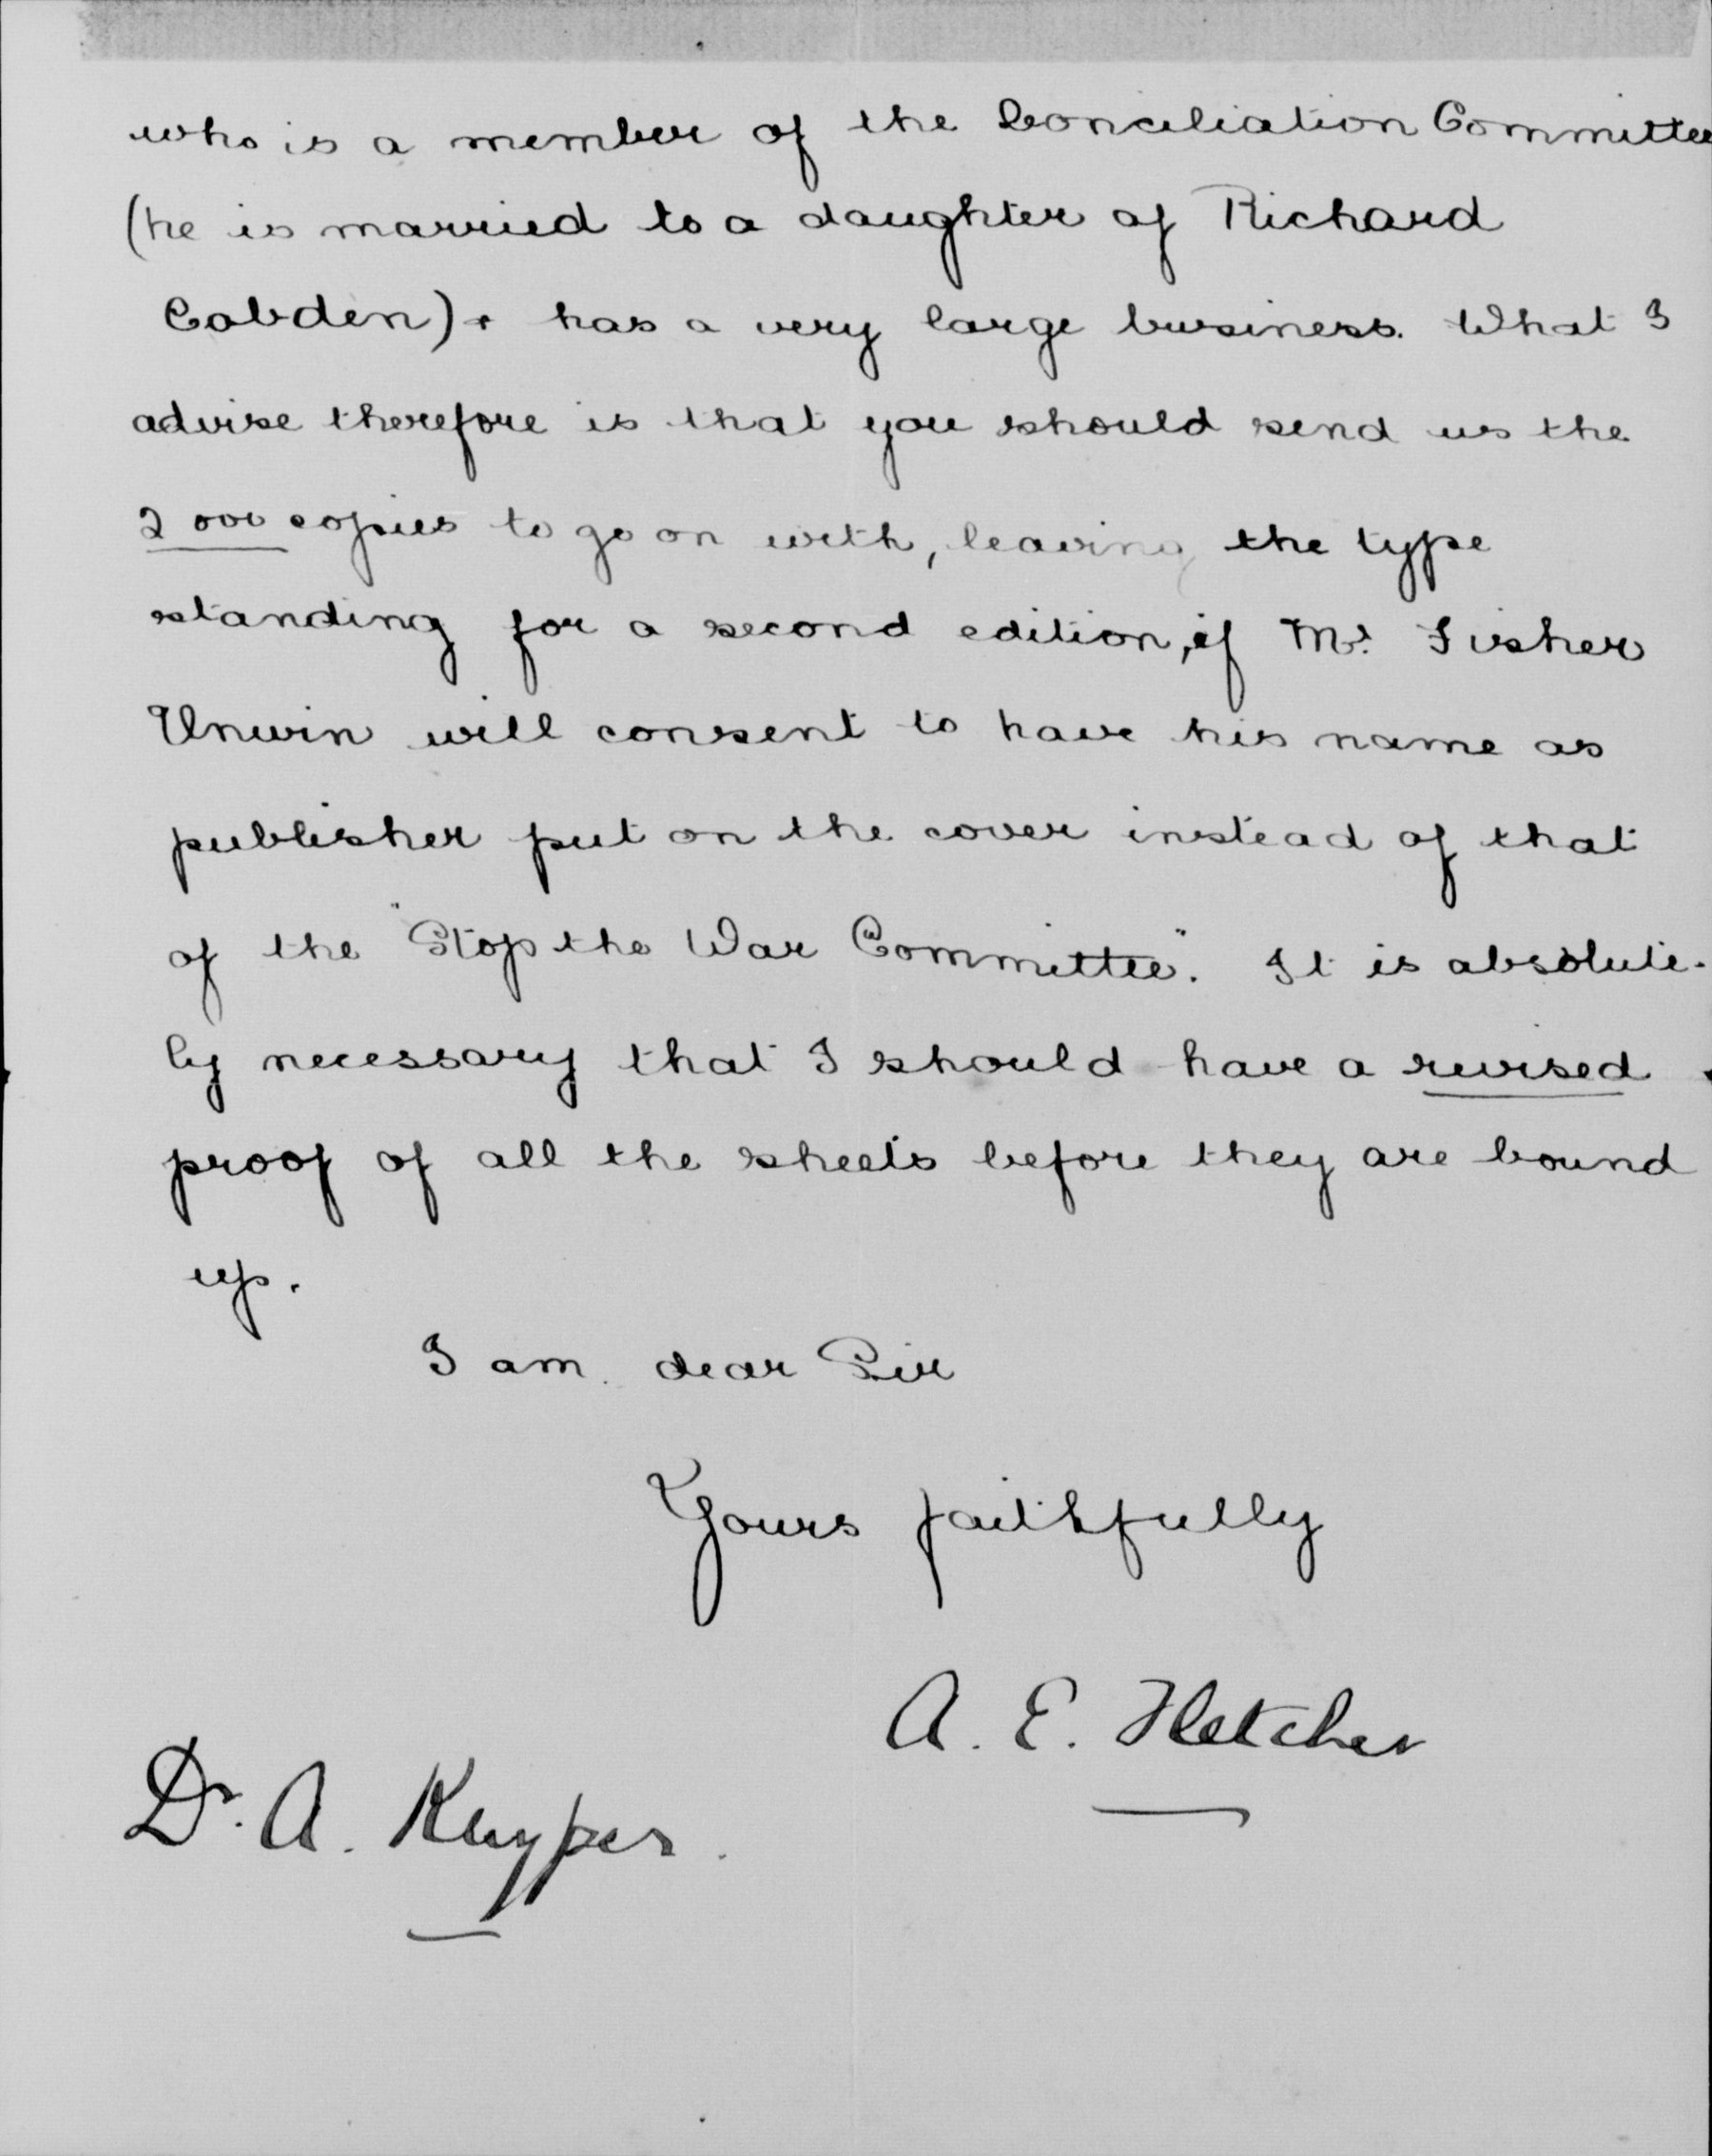 who is a member of the Conciliation Committee
(he is married to a daughter of Richard
Cobden) + has a very large business. What I
advise therefore is that you should send us the
2 000 copies to go on with, leaving the type
standing for a second edition, if Mr. Fisher
Unwin will consent to have his name as
publisher put on the cover instead of that
of the "Stop the War Committee". It is absolute-
ly necessary that I should have a revised
proof of all the sheets before they are bound
up.
I am dear Sir
Yours faithfully
A. E. Fletcher
Dr. A. Kuyper.